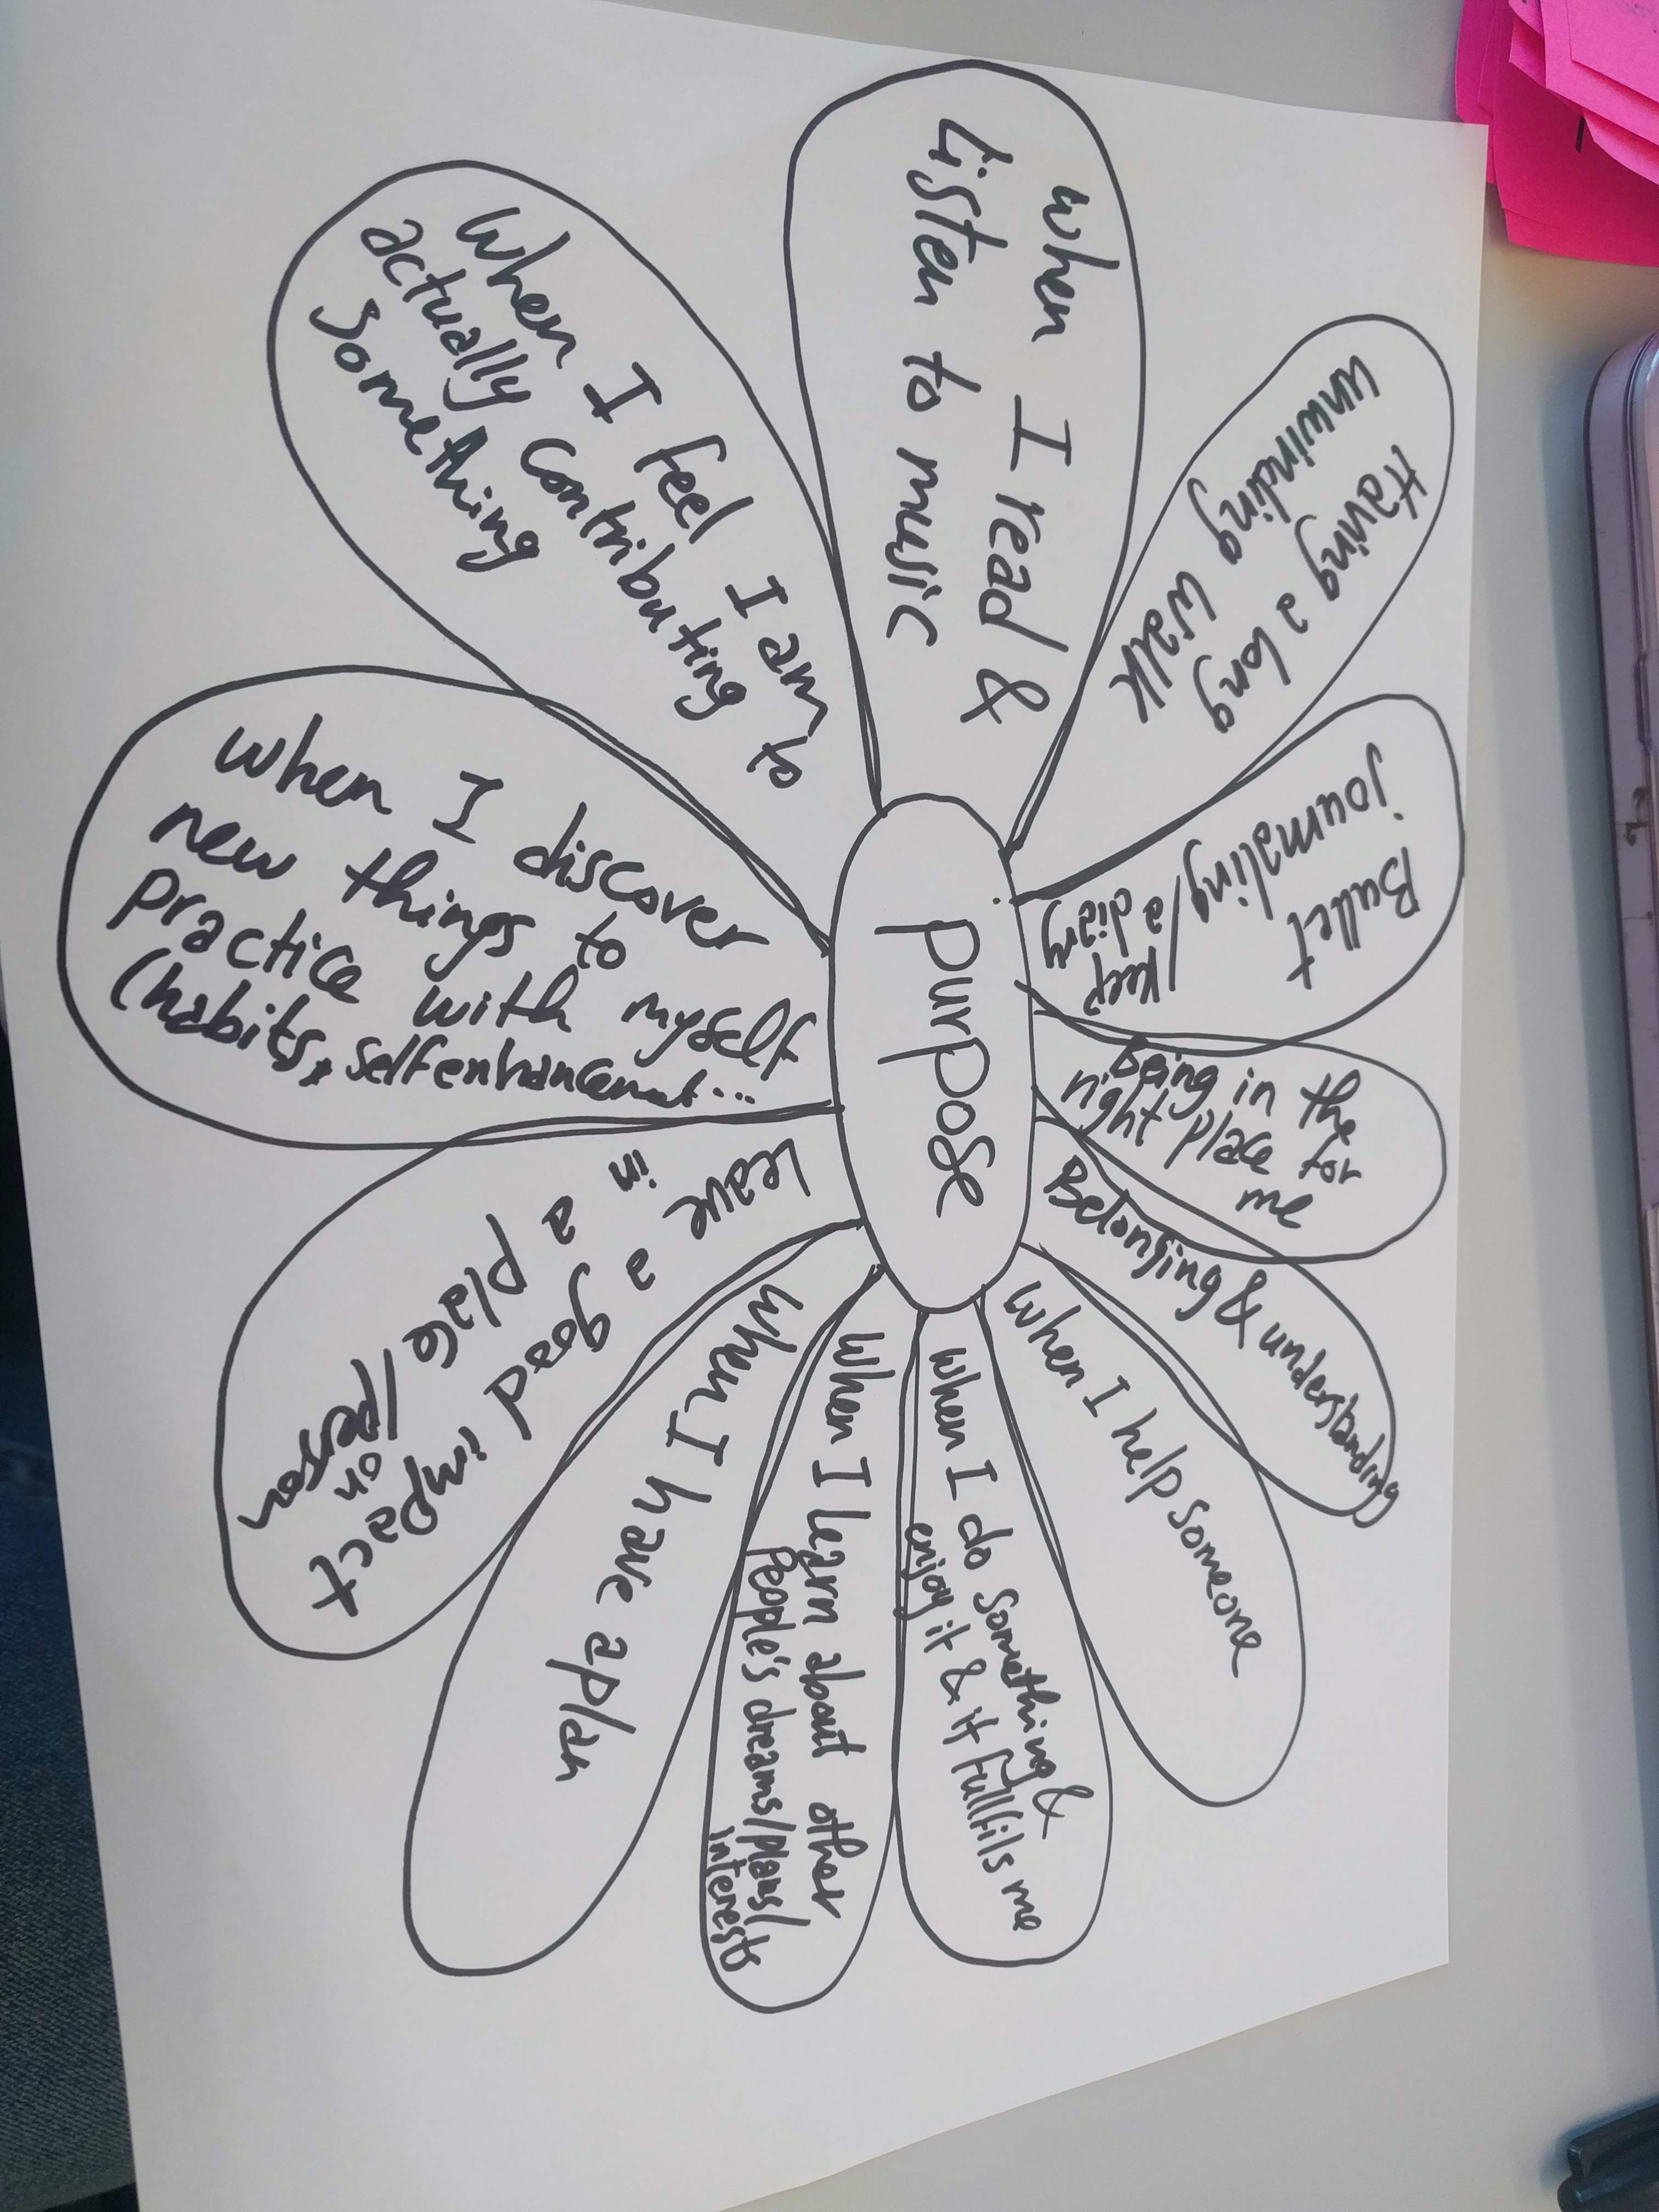 purpose
when I read &
Listen to music
Having a long
unwinding walk
Bullet
journaling/keep
a diary
being in the
right place for
me
Belonging & understanding
when I help someone
when I do something &
enjoy it & it fullfils me
when I learn about other
People's dreams/plans/
interests
when I have a plan
Leave a good impact
in a place/on
person
when I discover
new things to
practice with myself
(habits, selfenhancement...
when I feel I am to
actually contributing to
something